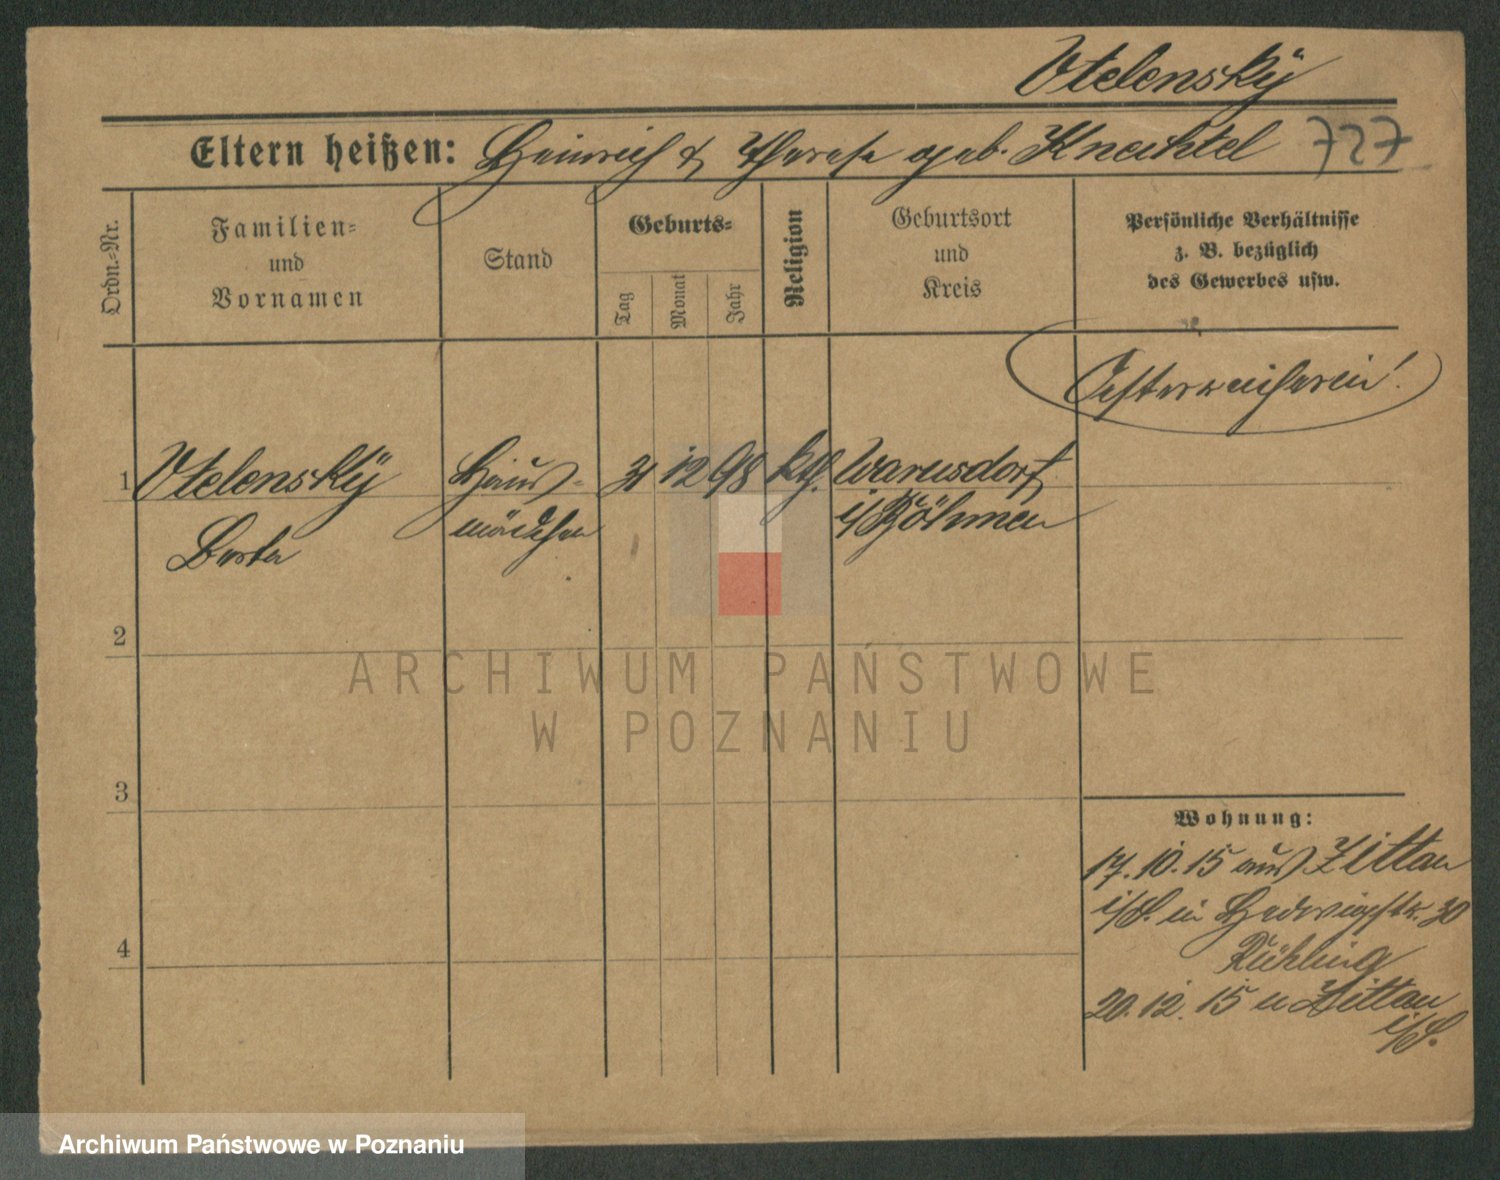 Utelenskÿ
Eltern heißen: Heinrich & Therese geb. Knechtel 727
Ordn.-Nr.
Familien-
und
Vornamen
Stand
Geburts-
Tag
Monat
Jahr
Religion
Geburtsort
und
Kreis
Persönliche Verhältnisse
z. B. bezüglich
des Gewerbes usw.
Oesterreicherin!
1 Utelenskÿ Haus- 31 12 98 kth. Warnsdorf
Berta mädchen i/Böhmen
2
3
4
Wohnung:
17.10.15 aus Zittau
i/S. in Hedwigstr. 30
Rühling
20.12.15 n Zittau
i/S.
ARCHIWUM PAŃSTWOWE
W POZNANIU
Archiwum Państwowe w Poznaniu